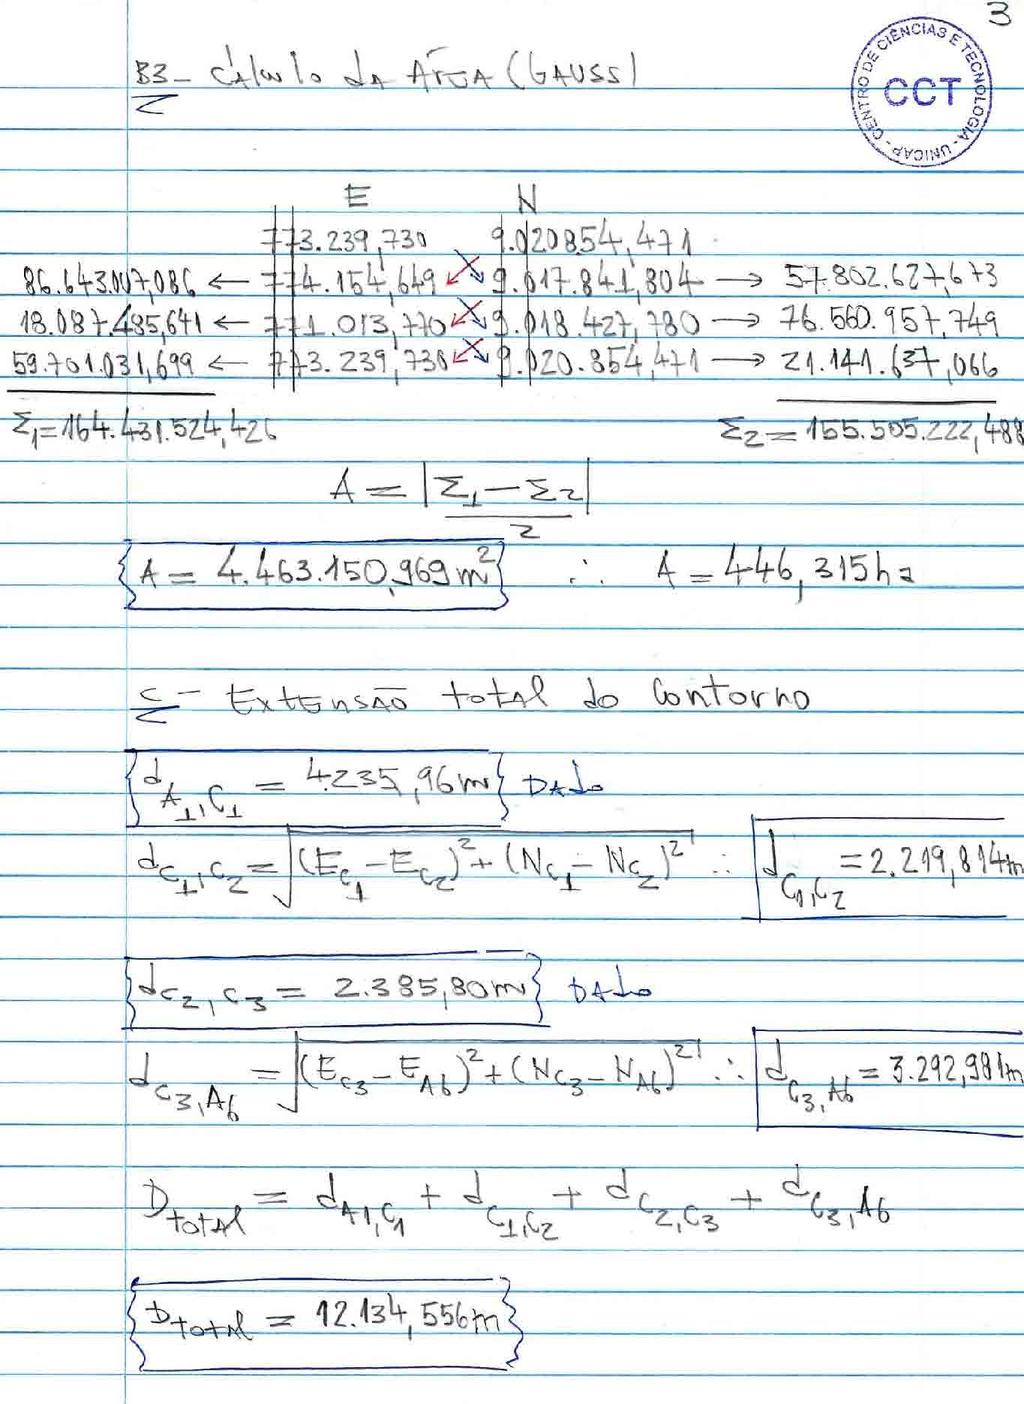 3
CENTRO DE CIÊNCIAS E TECNOLOGIA - UNICAP -
CCT
B3 - Cálculo da Área (GAUSS)
E N
773.239,730 9.020854,471
86.643.007,086 ← 774.154,649 9.017.841,804 → 57.802.627,673
18.087.485,641 ← 771.013,770 9.018.427,780 → 76.560.957,749
59.701.031,699 ← 773.239,730 9.020.854,471 → 21.141.637,066
Σ1=164.431.524,426 Σ2=155.505.222,488
A = |Σ1 - Σ2|
2
A = 4.463.150,969m² ∴ A = 446,315ha
C - Extensão total do contorno
dA1,C1 = 4.235,96m Dado
dC1,C2 = √(EC1 - EC2)² + (NC1 - NC2)² ∴ dC1,C2 = 2.219,814m
dC2,C3 = 2.385,80m Dado
dC3,A6 = √(EC3 - EA6)² + (NC3 - NA6)² ∴ dC3,A6 = 3.292,981m
Dtotal = dA1,C1 + dC1,C2 + dC2,C3 + dC3,A6
Dtotal = 12.134,556m